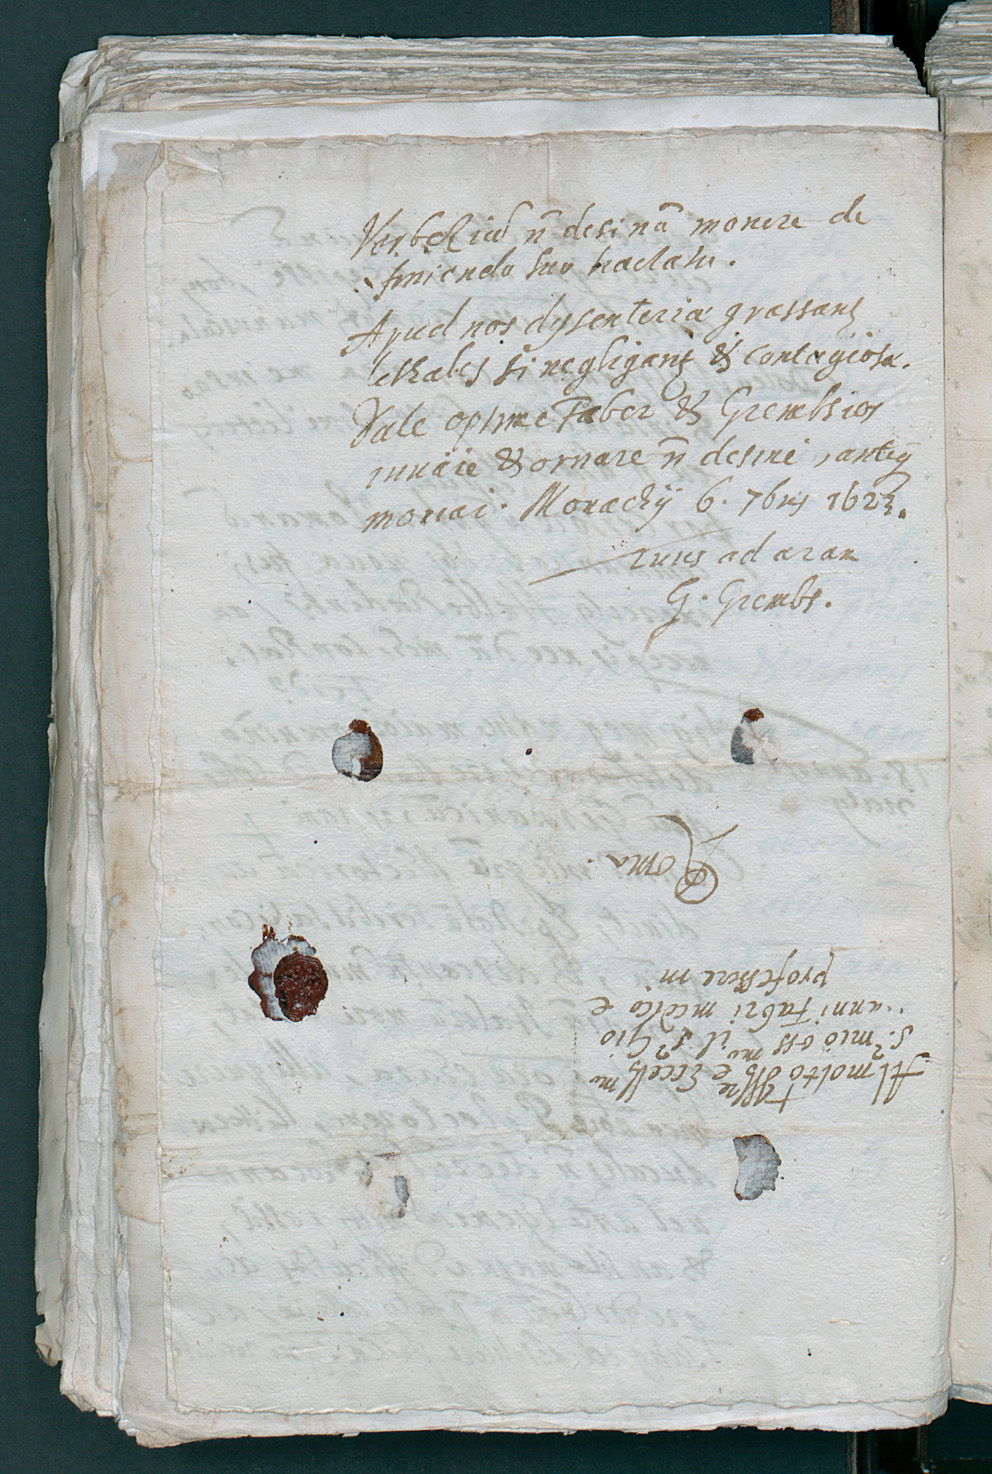 n̄ desinā monere de
finiendo suo tractatu.
Apud nos dysenteriae grassant
lethales si negligant & contagiosae.
Vale optime Faber & Grembsios
& ornare n̄ desine, antiq
Monachij 6. 7bris 1623.
tuus ad aram
G. Grembs.
Roma.
Al molto Illre e Eccellmo
S.r mio ossmo il Sr Gio
uanni Fabri medico e
professore in